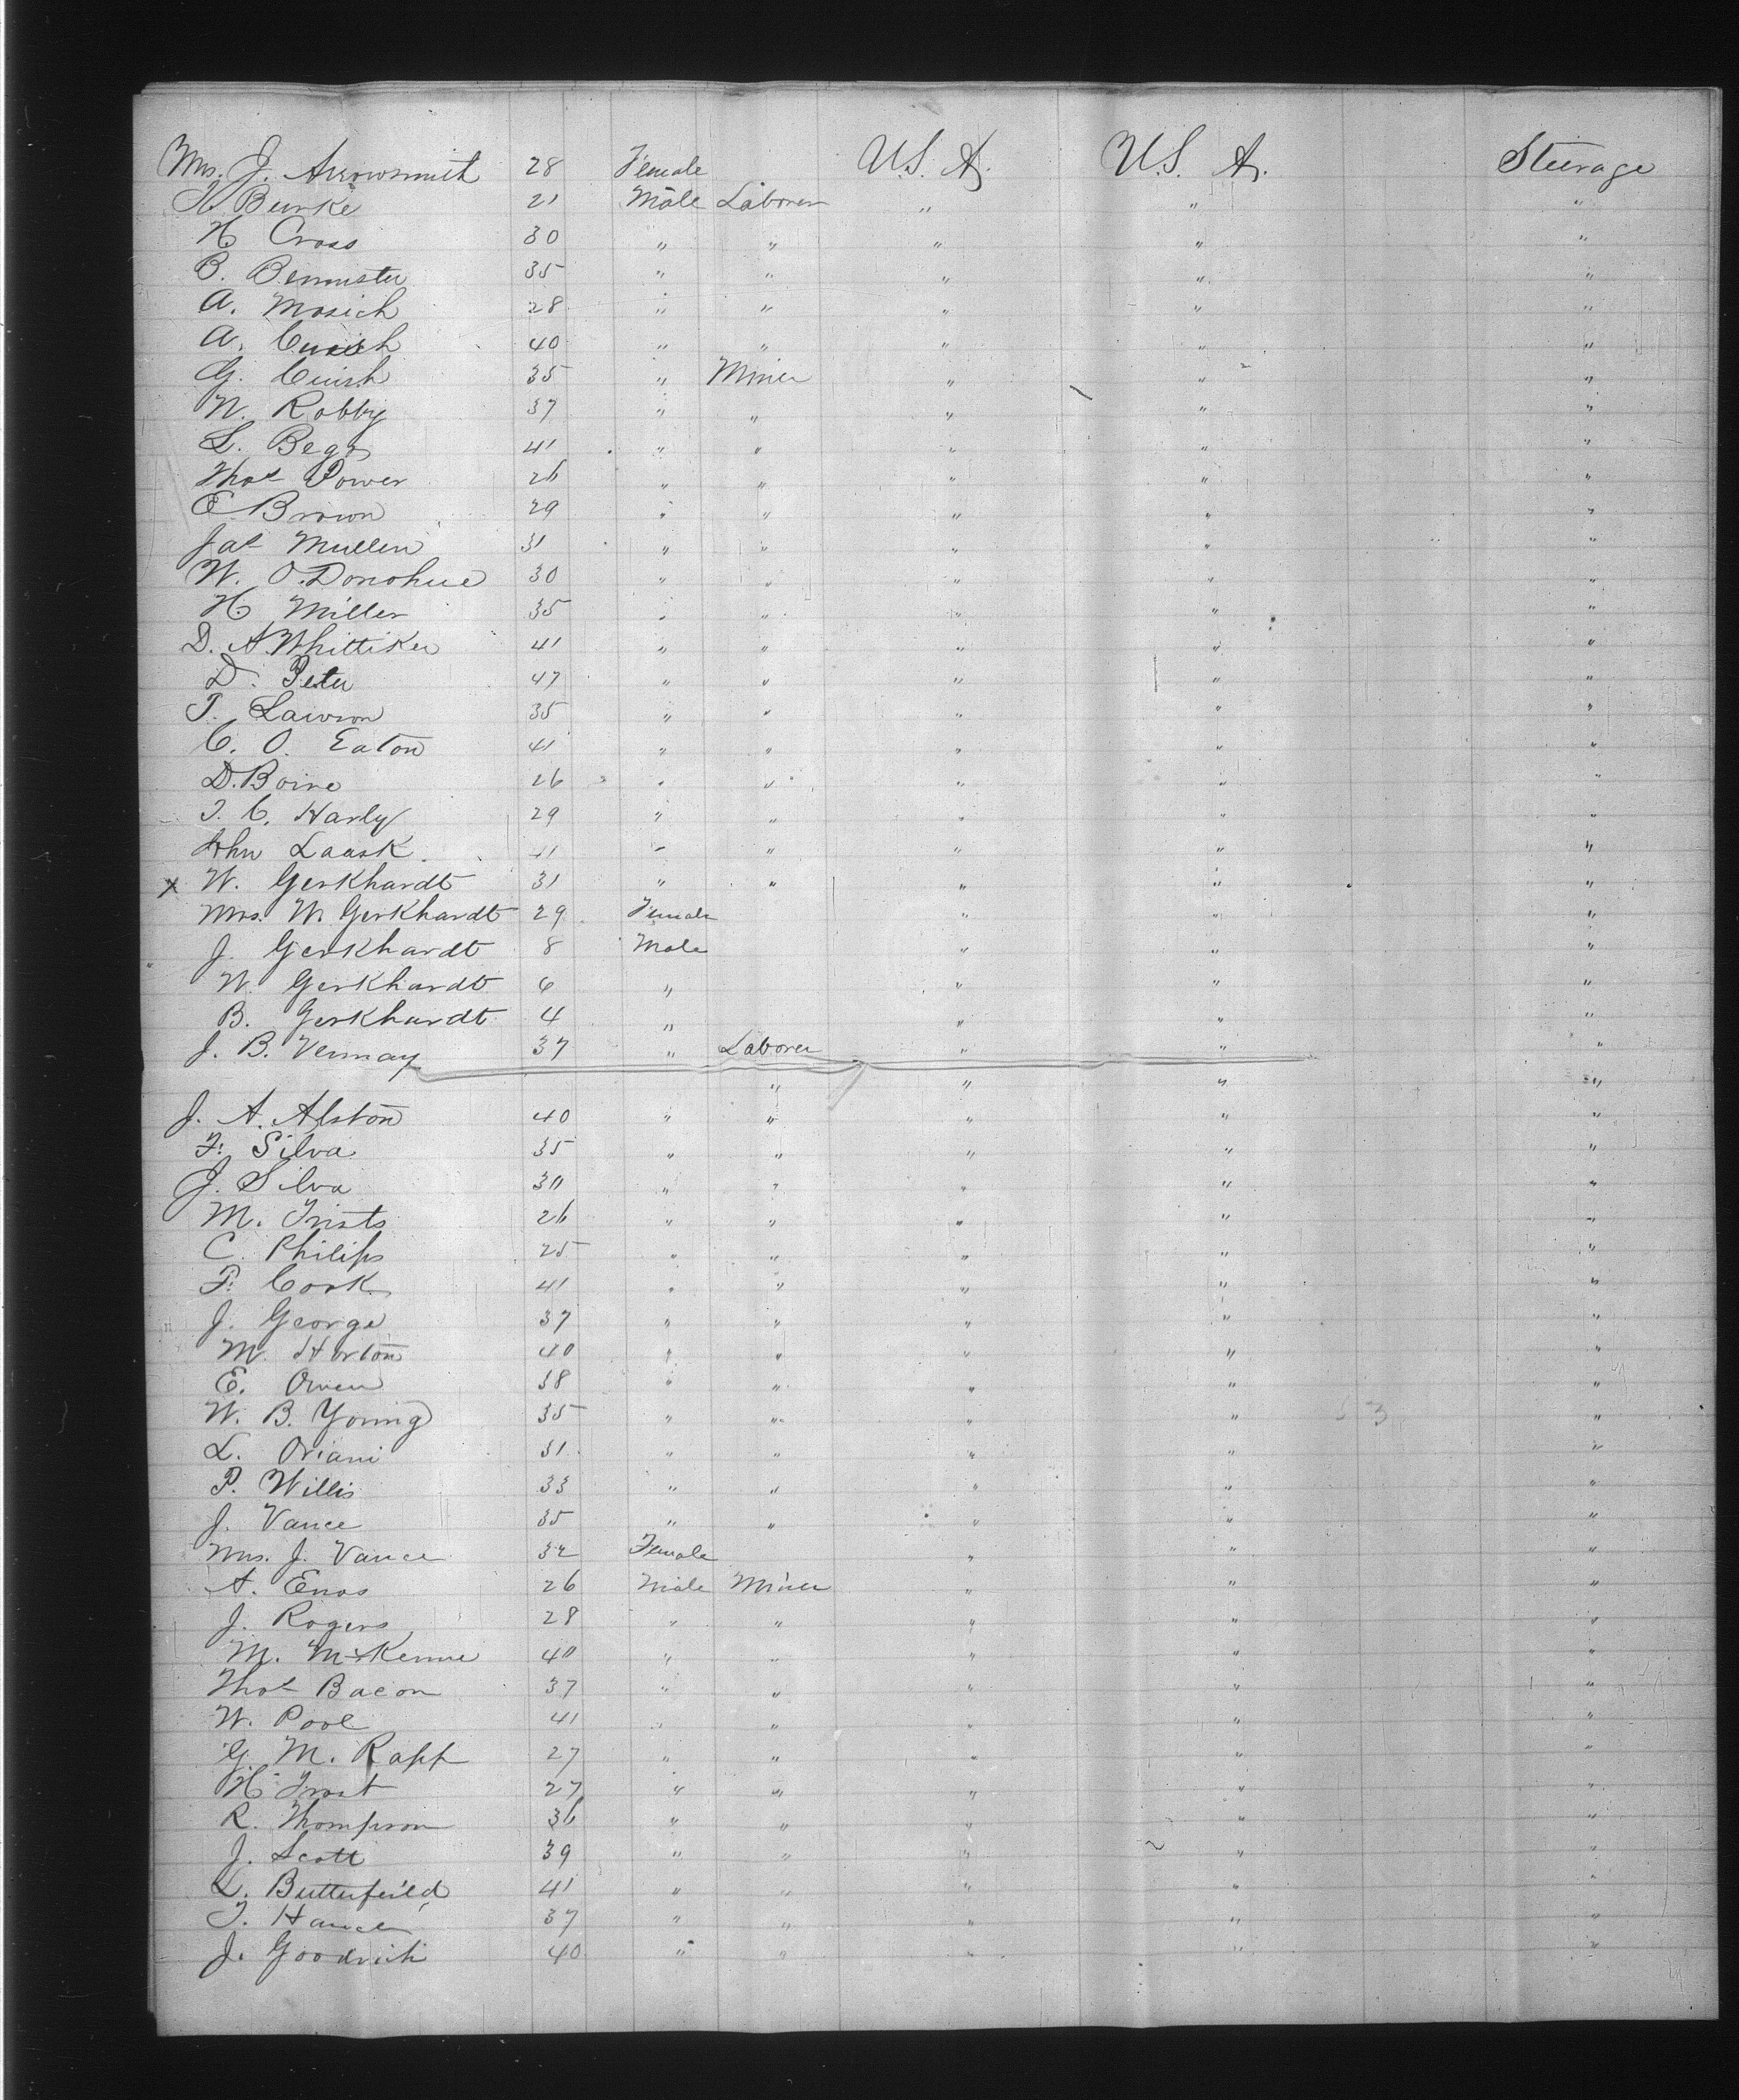 Mrs. J. Arrowsmith 28 Female U.S. A. U.S. A. Steerage
H Burke 21 Male Laborer " " "
H Cross 30 " " " " "
B. Bennister 35 " " " " "
A. Mosich 28 " " " " "
A. 40 " " " " "
G. 35 " Miner " " "
N. Robby 37 " " " " "
L. Begg 41 " " " " "
Thos Power 26 " " " " "
E Brown 29 " " " " "
Jas Mullen 31 " " " " "
W. O.Donohue 30 " " " " "
H. Miller 35 " " " " "
D. A. Whittiker 41 " " " " "
D. Peter 47 " " " " "
T. Lawson 35 " " " " "
C. O. Eaton 41 " " " " "
D. Boine 26 " " " " "
T. C. Harly 29 " " " " "
John Laask 41 " " " " "
X W. Gerkhardt 31 " " " " "
Mrs. W. Gerkhardt 29 Female " " "
J. Gerkhardt 8 Male " " "
W. Gerkhardt 6 " " " "
B. Gerkhardt 4 " " " "
J. B. Vermay 37 " Laborer " " "
" " " "
J. A. Alston 40 " " " " "
F. Silva 35 " " " " "
J. Silva 30 " " " " "
M. 26 " " " " "
C. Philips 25 " " " " "
P. Cook 41 " " " " "
J. George 37 " " " " "
M. Horton 40 " " " " "
E. Owen 38 " " " " "
W. B. Young 35 " " " " "
L. Oriani 31 " " " " "
P. Willis 33 " " " " "
J. Vance 35 " " " " "
Mrs. J. Vance 32 Female " " "
A. Enos 26 Male Miner " " "
J. Rogers 28 " " " " "
M. McKennie 40 " " " " "
Thos Bacon 37 " " " " "
W. Pool 41 " " " " "
G. M. Rapp 27 " " " " "
H. Trost 27 " " " " "
R. Thompson 36 " " " " "
J. Scott 39 " " " " "
L. Butterfeild 41 " " " " "
T. Hance 37 " " " " "
J. Goodrich 40 " " " " "